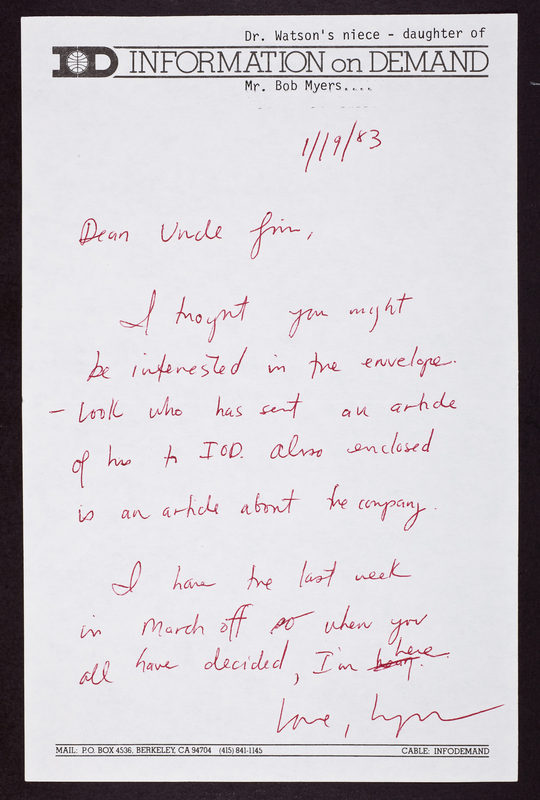 Dr. Watson's niece - daughter of
IOD INFORMATION on DEMAND
Mr. Bob Myers....
1/19/83
Dear Uncle Jim,
I thought you might
be interested in the envelope.
- Look who has sent an article
of his to IOD. Also enclosed
is an article about the company.
I have the last week
in March off so when you
all have decided, I'm here.
Love, Lynn
MAIL: P.O. BOX 4536, BERKELEY, CA 94704 (415) 841-1145
CABLE: INFODEMAND